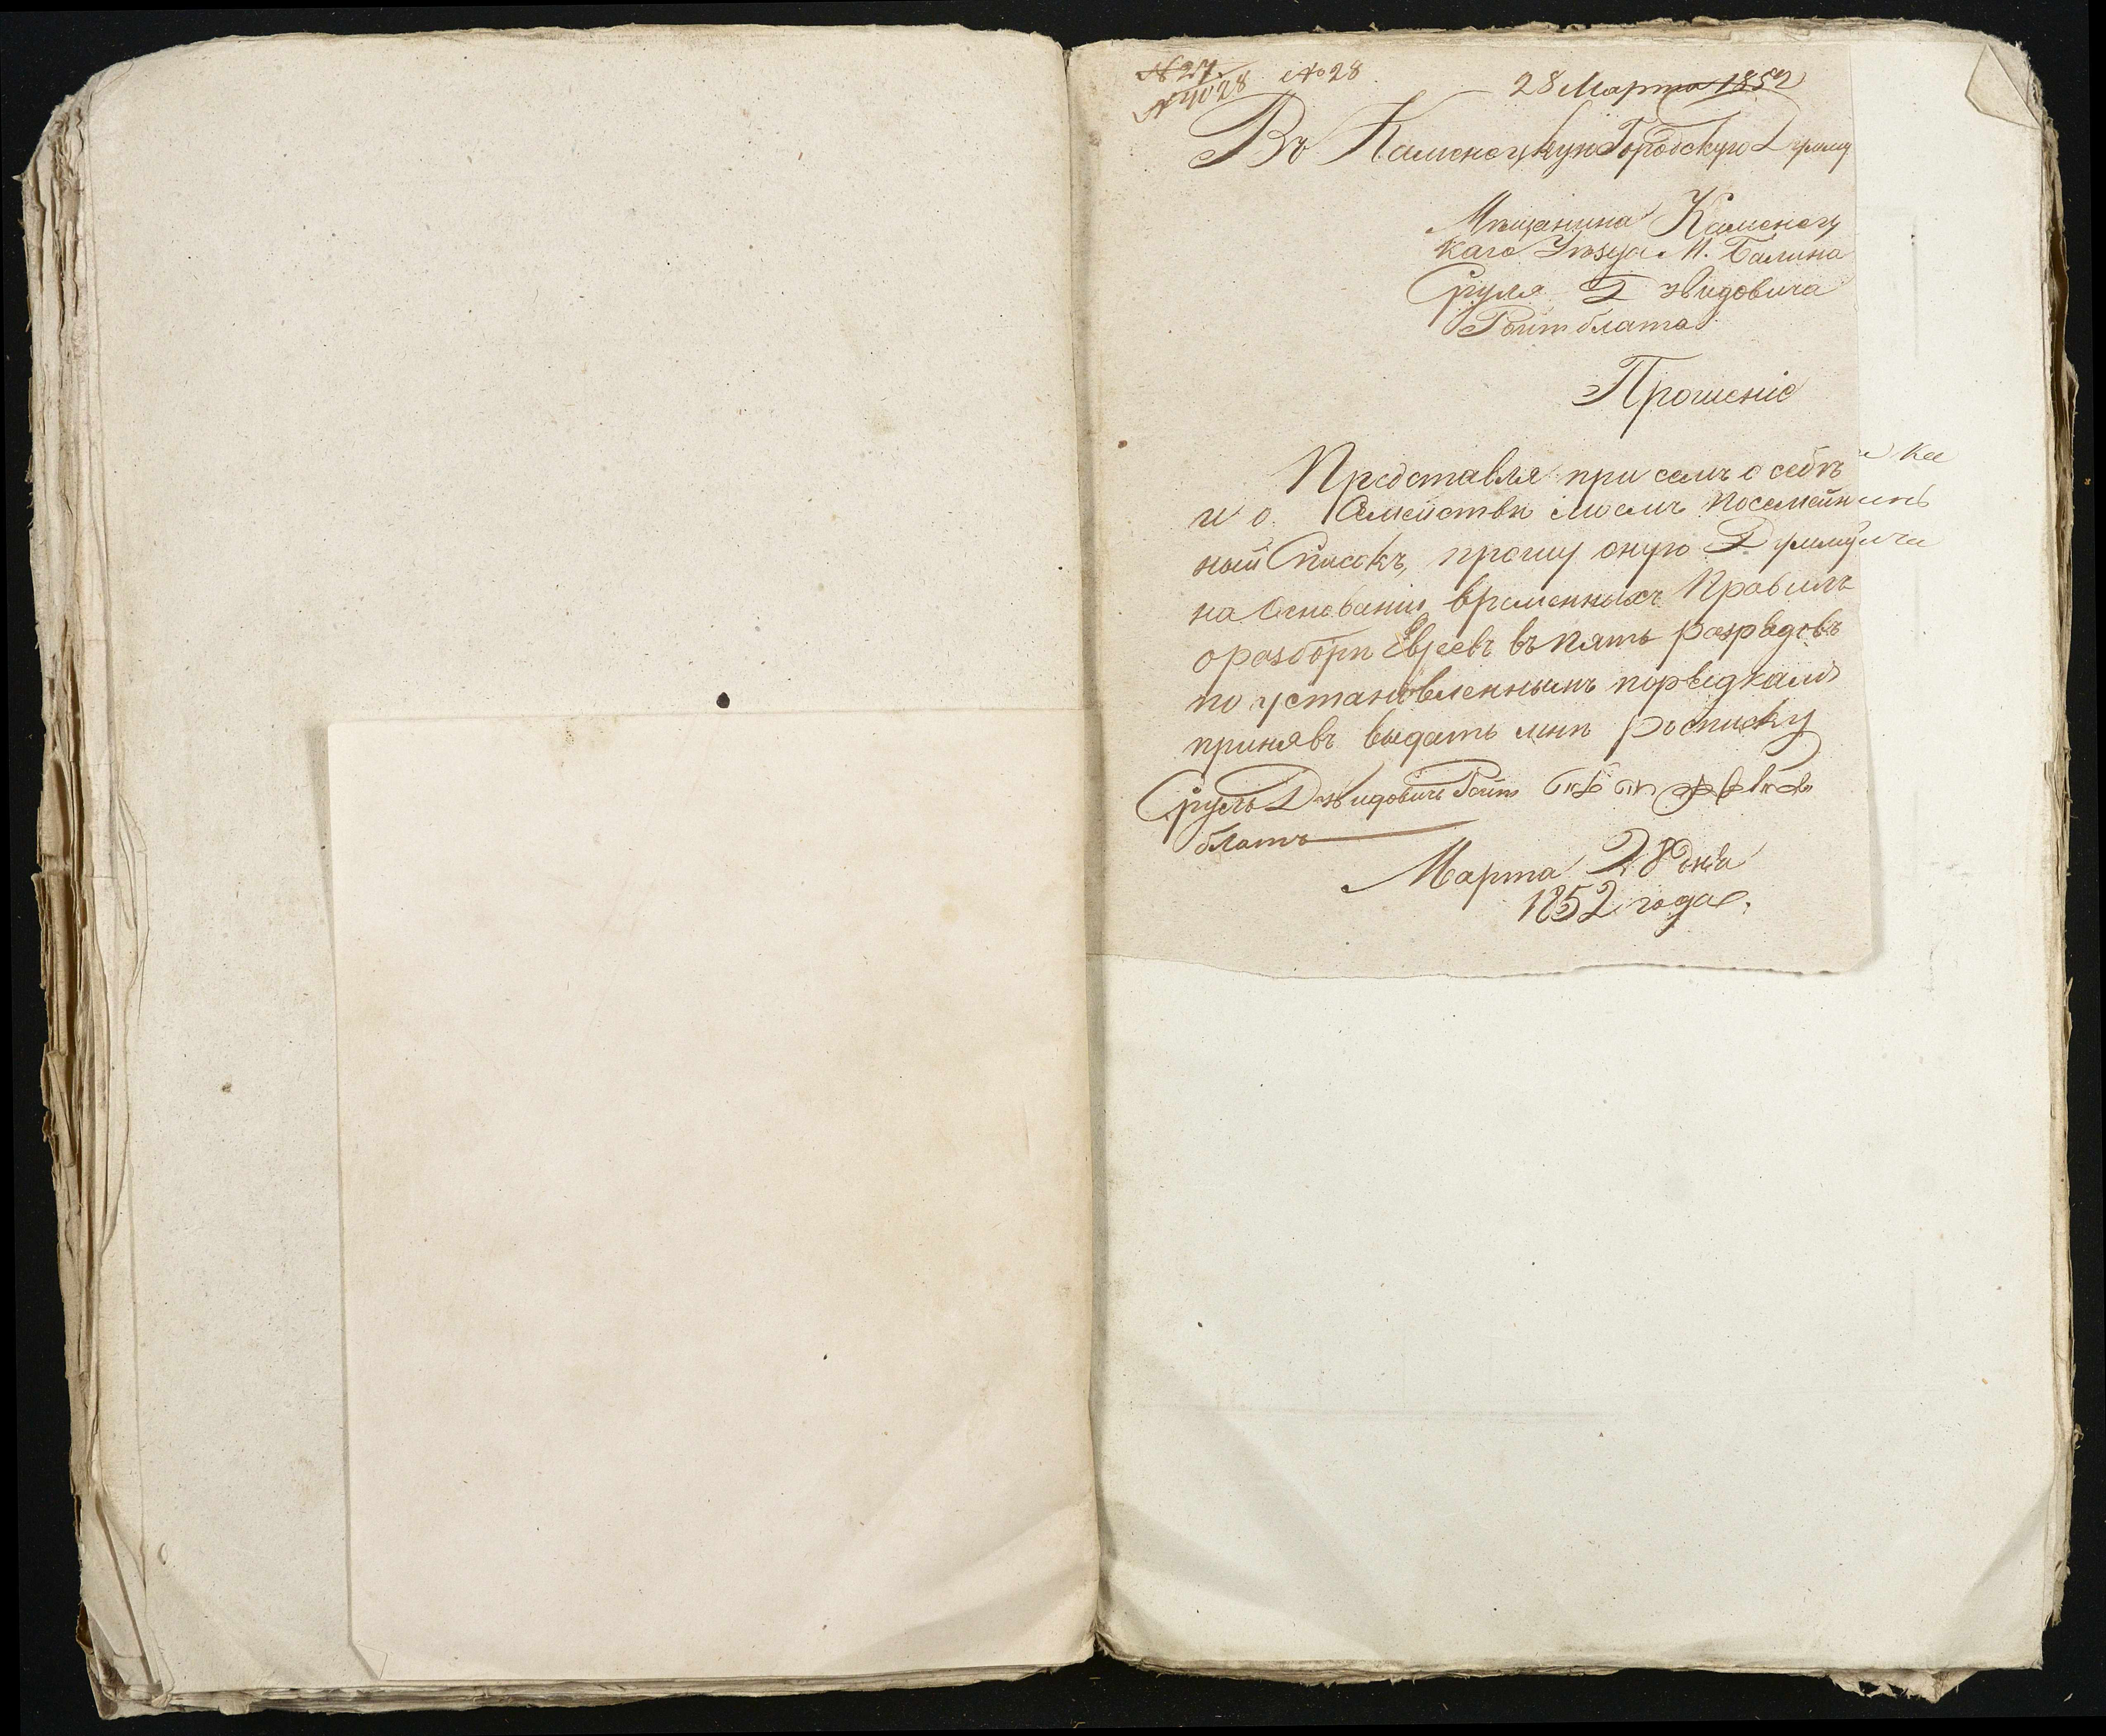 № 27. № 28 28 Марта 1852
№ 28
Въ Каменецкую Городскую Думу
Мещанина Каменец
каго Уѣзда М. Балина
Сруля Давидовича
Ройтблата
Прошеніе
Предоставля при семъ о себѣ
и о Семействѣ моемъ посемейн
ный Списокъ, прошу оную Думу
на Основаніи временныхъ Правилъ
о разборѣ Евреевъ въ пять разрядовъ
по установленнымъ порядкамъ
принявъ выдать мнѣ росписку
Сруль Давидовичъ Ройт
блатъ
Марта 28 дня
1852 года.